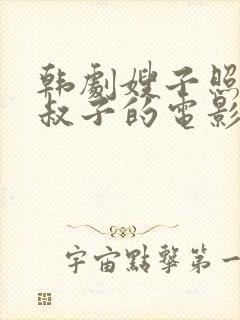 韩劇嫂子照
叔子的電影
宇宙點擊第一